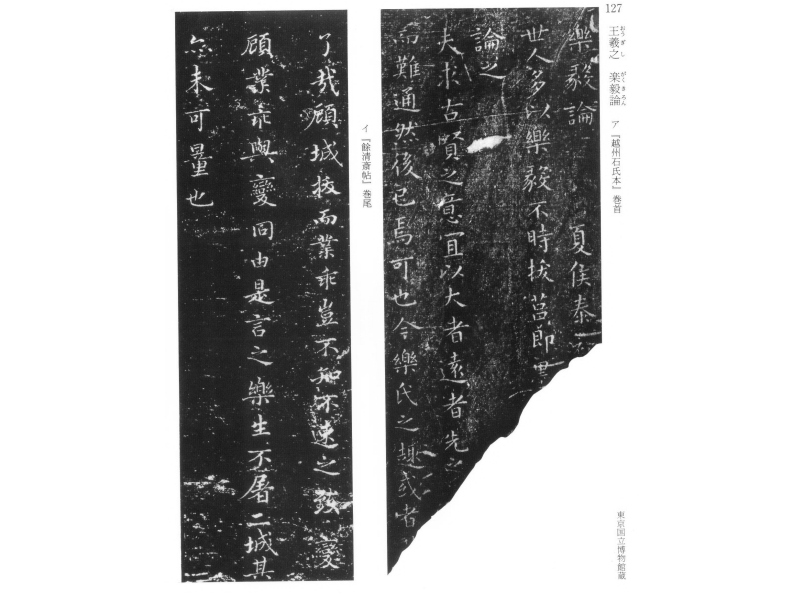 127
王羲之 楽毅論 ア『越州石氏本』巻首
おうぎし がくきろん
樂毅論 夏侯泰
世人多以樂毅不時拔莒即墨
論之
夫求古賢之意宜以大者遠者先之
而難通然後已焉可也今樂氏之趣或者
イ『餘清斎帖』巻尾
了哉顧城拔而業乖豈不知不速之致變
顧業乖與變同由是言之樂生不屠二城其
亦未可量也
東京国立博物館蔵